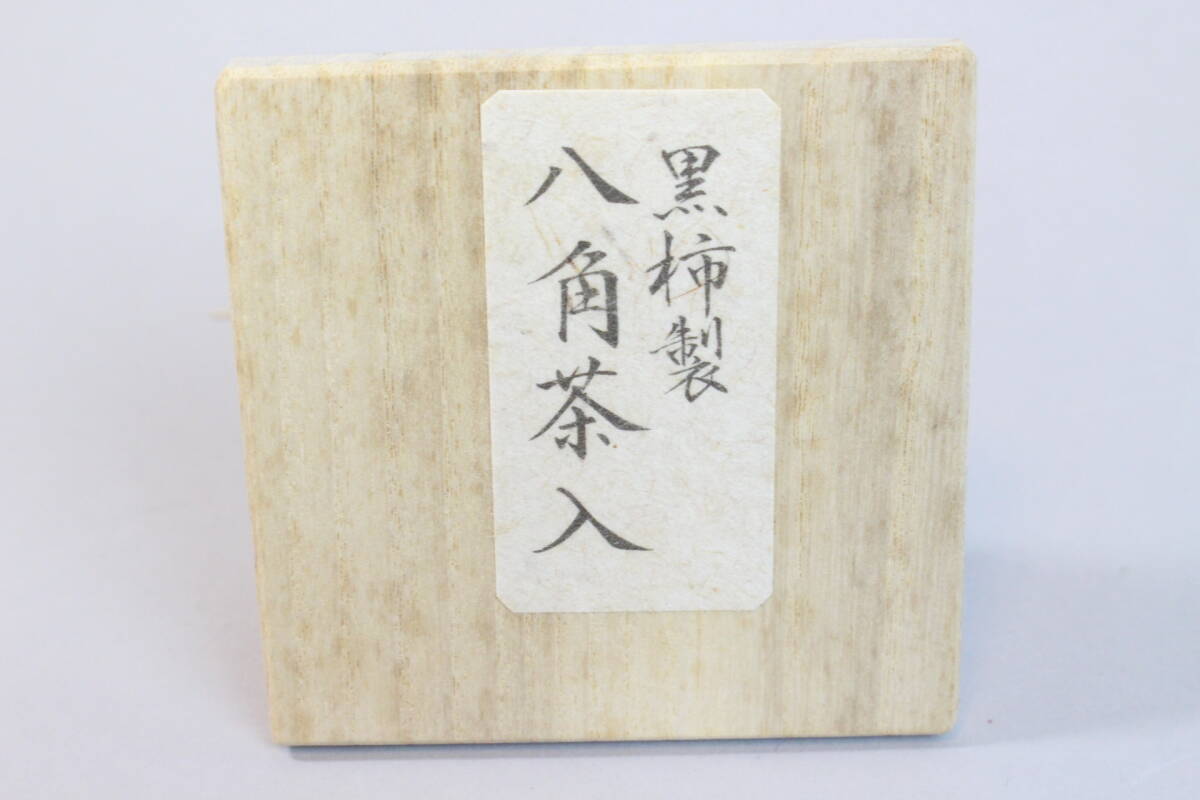 黒柿製
八角茶入